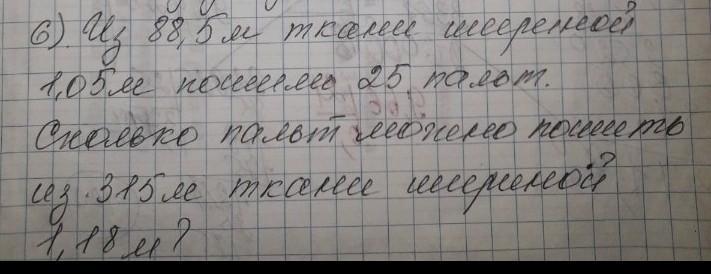 6). Из 88,5м ткани шириной
1,05м пошили 25 пальт.
Сколько пальт можно пошить
из 315м ткани шириной
1,18м?